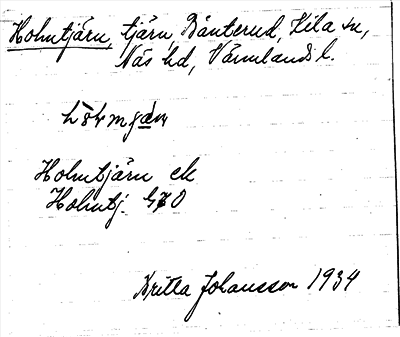 Holmtjärn, tjärn, Bänterud, Kila sn,
Näs hd, Värmlands l.
Holmtjärn ek
Holmtj. GEO
Britta Johansson 1934